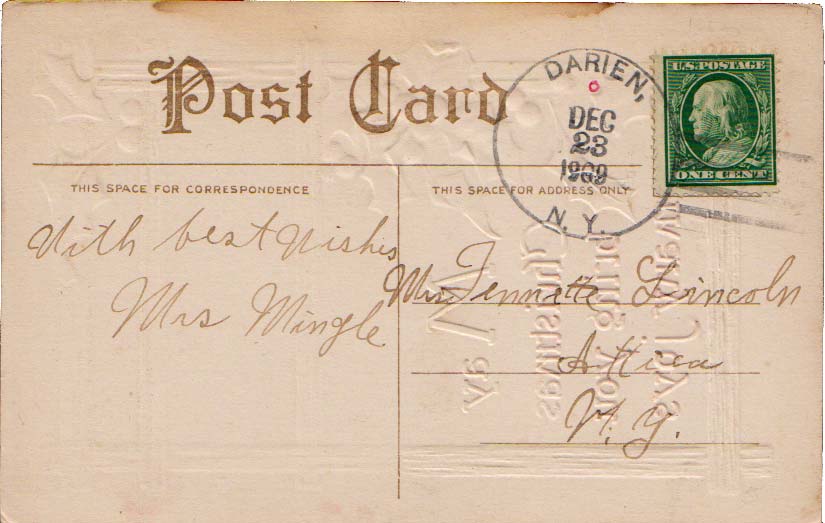 Post Card
DARIEN,
DEC
23
1909
N. Y.
U.S. POSTAGE
ONE CENT
THIS SPACE FOR CORRESPONDENCE
THIS SPACE FOR ADDRESS ONLY
With best wishes
Mrs Mingle
Mrs Lincoln
Attica
N. Y.